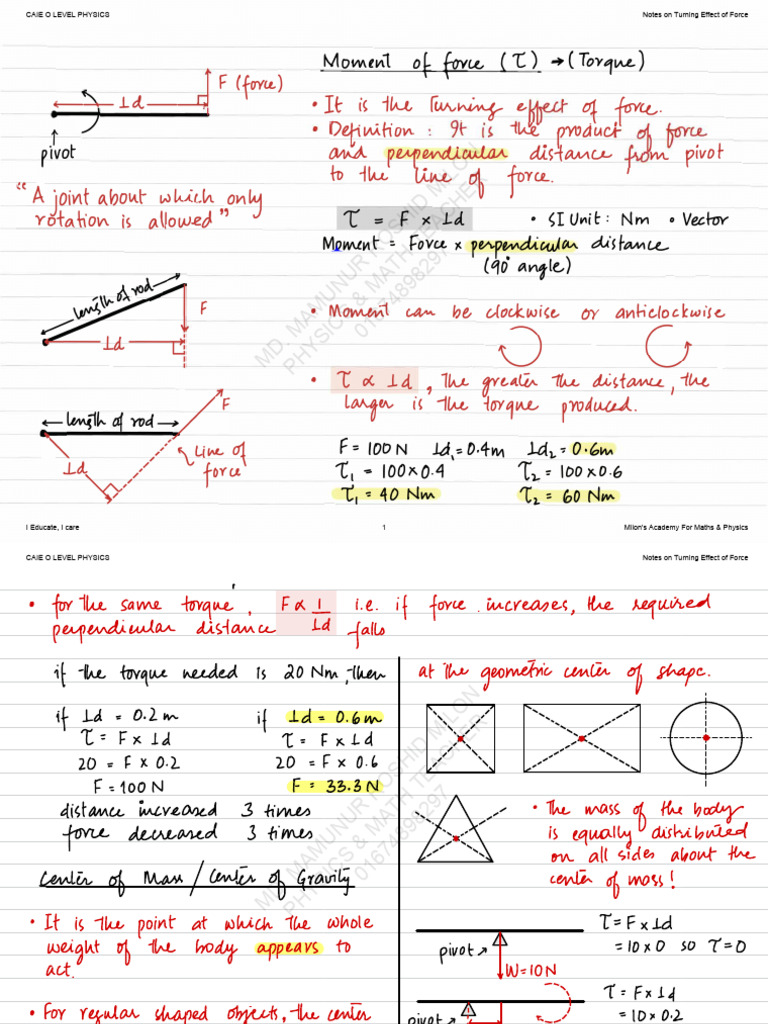 CAIE O LEVEL PHYSICS
Notes on Turning Effect of Force
F (force)
⊥d
pivot
"A joint about which only
rotation is allowed"
length of rod
F
⊥d
length of rod
F
⊥d
Line of
force
Moment of force (τ) → (Torque)
• It is the Turning effect of force.
• Definition : It is the product of force
and perpendicular distance from pivot
to the line of force.
τ = F × ⊥d • SI Unit : Nm • Vector
Moment = Force × perpendicular distance
(90° angle)
• Moment can be clockwise or anticlockwise
• τ ∝ ⊥d , The greater the distance, the
larger is the torque produced.
F = 100 N ⊥d₁ = 0.4m ⊥d₂ = 0.6m
τ₁ = 100 × 0.4 τ₂ = 100 × 0.6
τ₁ = 40 Nm τ₂ = 60 Nm
MD. MAMUNUR ROSHID MILON
PHYSICS & MATH TEACHER
01674898297
I Educate, I care
1
Milon's Academy For Maths & Physics
CAIE O LEVEL PHYSICS
Notes on Turning Effect of Force
• for the same torque, F ∝ 1/⊥d i.e. if force increases, the required
perpendicular distance falls
if the torque needed is 20 Nm, then
if ⊥d = 0.2 m if ⊥d = 0.6m
τ = F × ⊥d τ = F × ⊥d
20 = F × 0.2 20 = F × 0.6
F = 100 N F = 33.3 N
distance increased 3 times
force decreased 3 times
Center of Mass / Center of Gravity
• It is the point at which the whole
weight of the body appears to
act.
• For regular shaped objects, the center
at the geometric center of shape.
• The mass of the body
is equally distributed
on all sides about the
center of mass!
pivot
W = 10N
τ = F × ⊥d
= 10 × 0 so τ = 0
pivot
τ = F × ⊥d
= 10 × 0.2
MD. MAMUNUR ROSHID MILON
PHYSICS & MATH TEACHER
01674898297